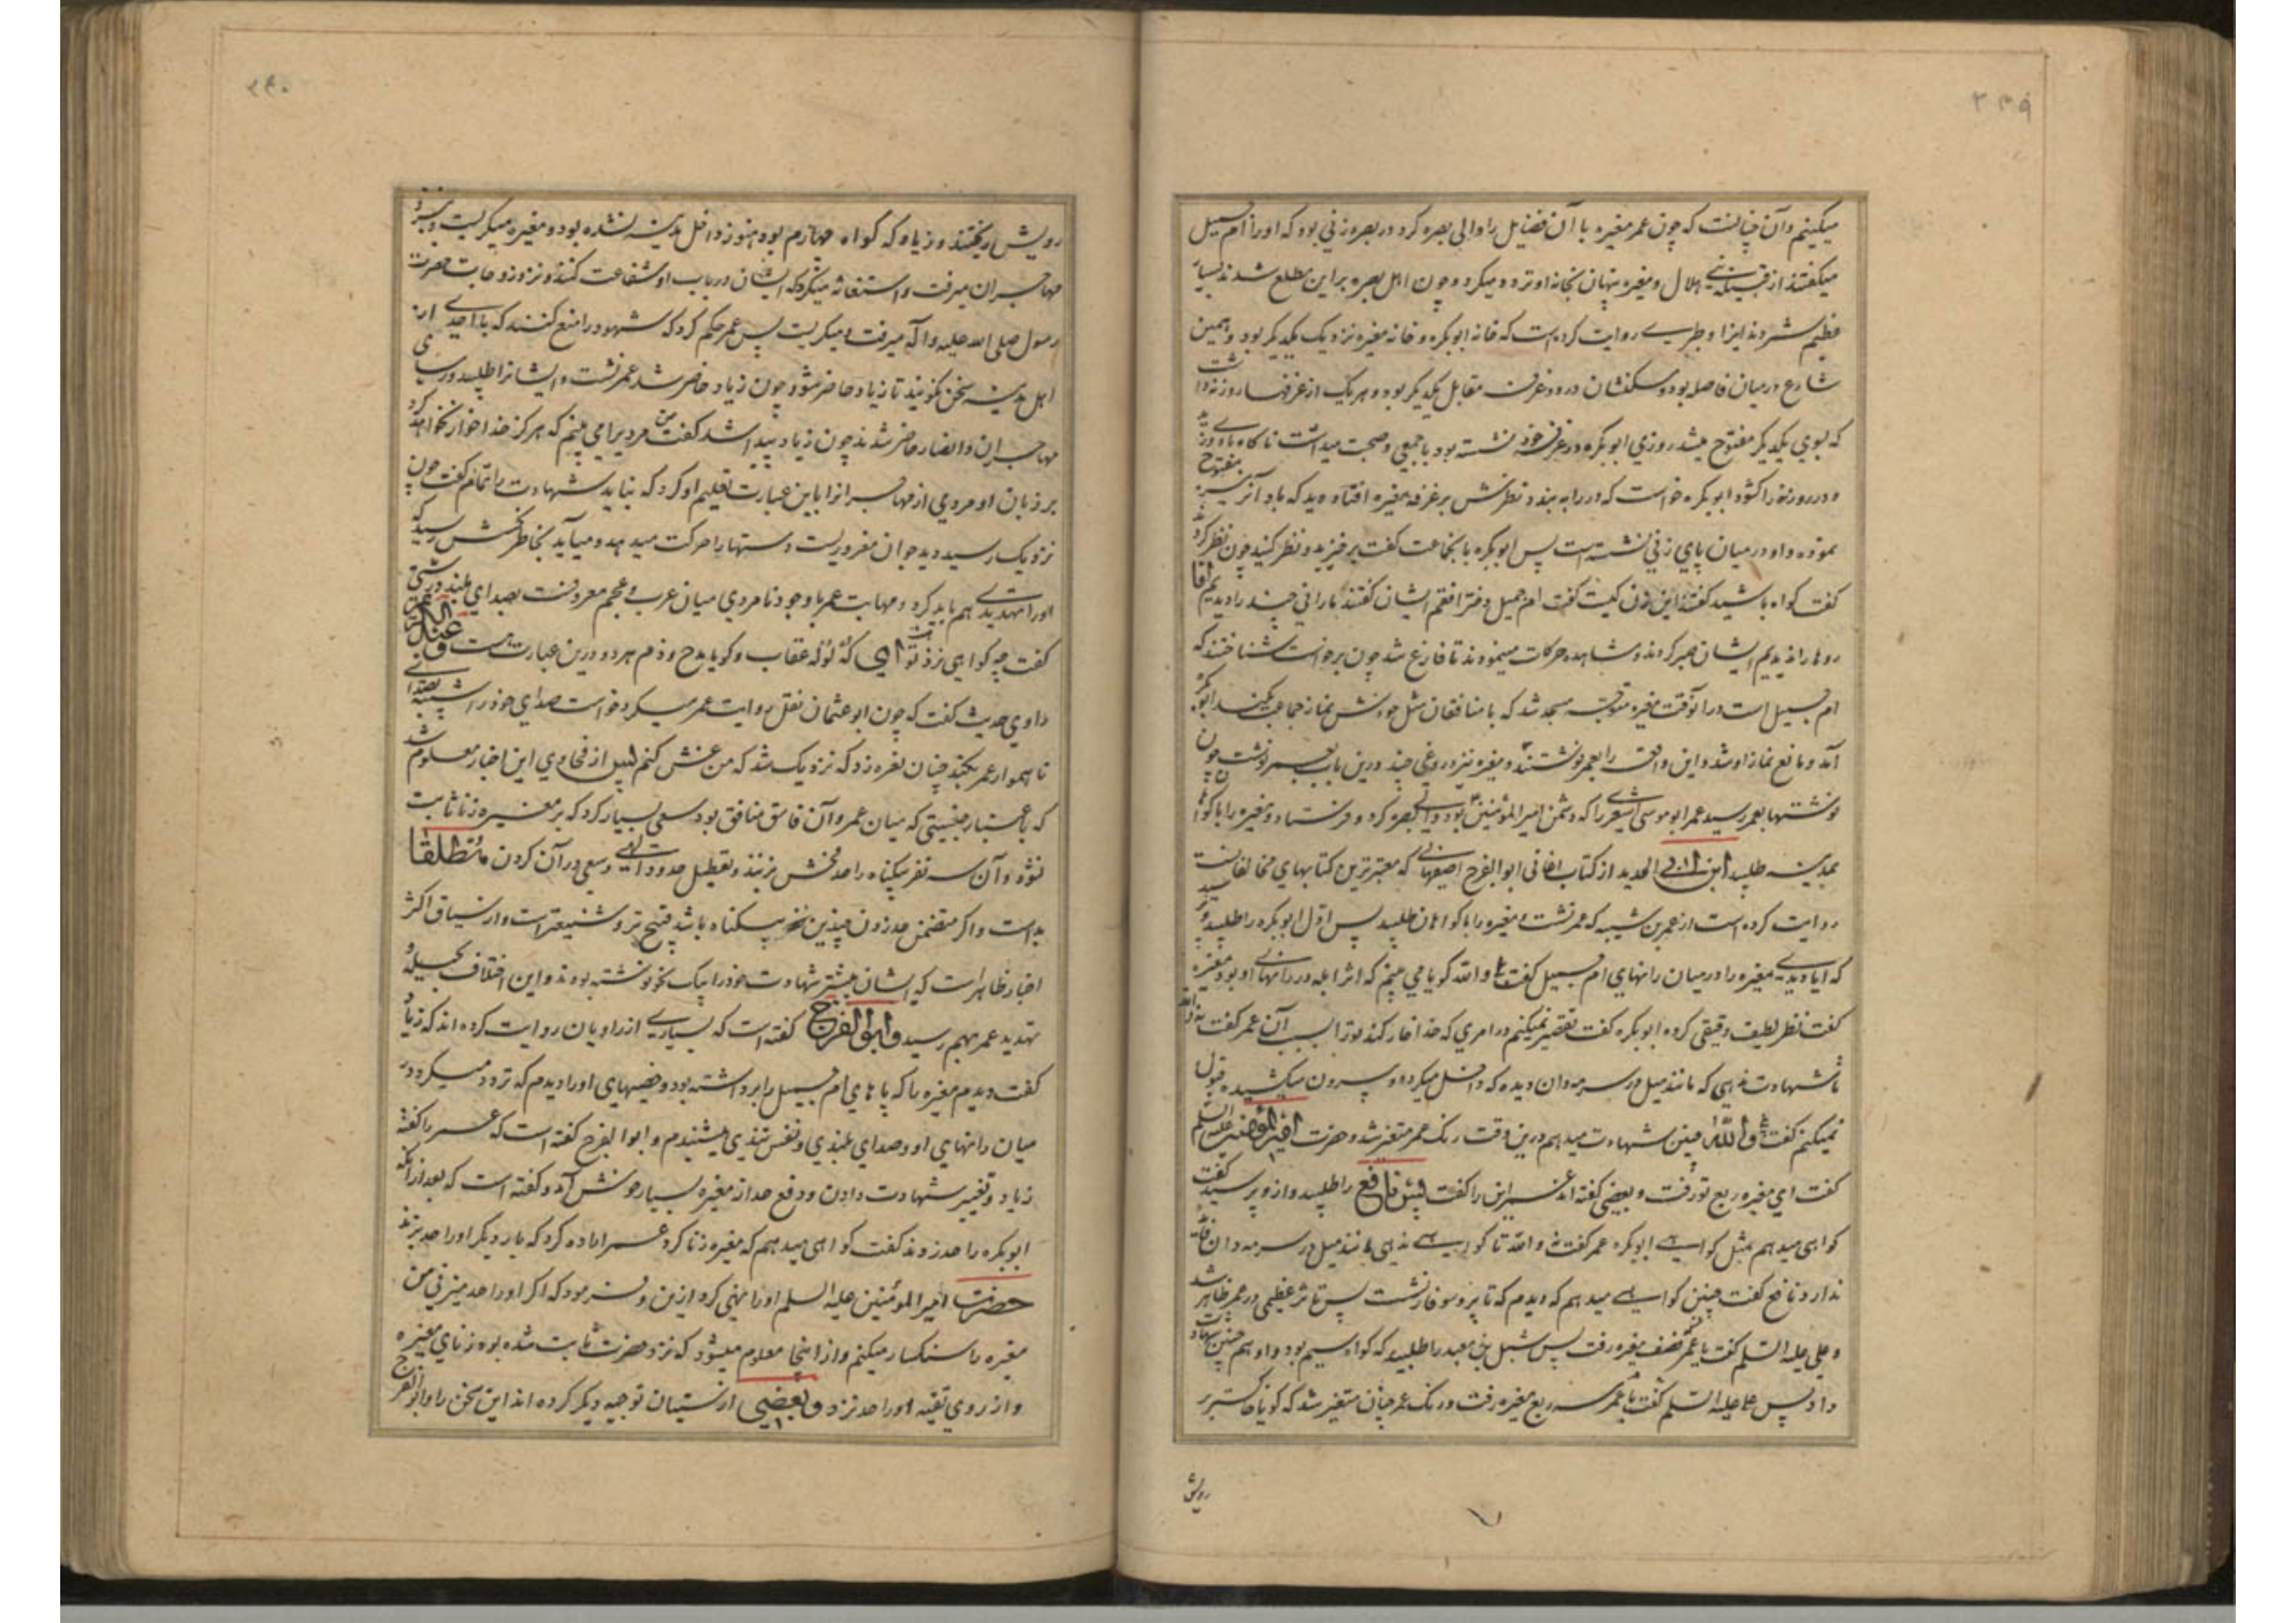 ۲۳۹
میکینم و آن چنانست که چون عمر مغیره با آن فضایل را والی بصره کرد در بصره زنی بود که او را ام جمیل
میکفتند از قبیله بنی هلال و مغیره پنهان بخانه او تردد میکرد و چون اهل بصره بر این مطلع شدند بسیار
عظیم شمردند اینرا و طبری روایت کرده است که خانه ابوبکره و خانه مغیره نزدیک یکدیکر بود و همین
شارع در میان فاصله بود و مسکنشان در دو غرفه مقابل یکدیکر بود و هر یک از غرفها روزنه داشت
که بسوی یکدیکر مفتوح میشد روزی ابوبکره در غرفه خود نشسته بود با جمعی و صحبت میداشت ناکاه باد وزید
و در روزنه را کشود ابوبکره خواست که در را به بندد نظرش بر غرفه مغیره افتاد دید که باد آنرا نیز مفتوح
نموده و او در میان پای زنی نشسته است پس ابوبکره با نجماعت کفت برخیزید و نظر کنید چون نظر کردند
کفت کواه باشید کفتند این زن کیست کفت ام جمیل دختر افقم ایشان کفتند ما رانی چند را دیدیم اما
روها را ندیدیم ایشان صبر کردند و مشاهده حرکات مینمودند تا فارغ شد چون برخواست شناختند که
ام جمیل است در آنوقت مغیره متوجه مسجد شد که با منافقان مثل خودش نماز جماعت بکند ابوبکره
آمد و مانع نماز او شد و این واقعه را بعمر نوشتند و مغیره نیز دروغی چند درین باب بعمر نوشت چون
نوشتها بعمر رسید عمر ابو موسی اشعری را که دشمن امیر المؤمنین بود والی بصره کرد و فرستاد و مغیره را با کواهان
بمدینه طلبید ابن ابی الحدید از کتاب اغانی ابو الفرج اصفهانی که معتبرترین کتابهای مخالفانست
روایت کرده است از عمر بن شیبه که عمر نشست و مغیره را با کواهان طلبید پس اول ابوبکره را طلبید و پرسید
که ایا دیدی مغیره را در میان رانهای ام جمیل کفت بلی و الله کویا می بینم که اثر ابله در رانهای او بود مغیره
کفت نظر لطیف دقیقی کرده ابوبکره کفت تقصیر نمیکنم در امری که خدا خوار کند ترا بسبب آن عمر کفت نه والله
تا شهادت ندهی که مانند میل در سرمه دان دیده که داخل میکرد و بیرون میکشید قبول
نمیکنم کفت والله چنین شهادت میدهم درین وقت رنک عمر متغیر شد و حضرت امیر المؤمنین علیه السلم
کفت ای مغیره ربع تو رفت و بعضی کفته اند عمر این را کفت پس نافع را طلبید و از و پرسید کفت
کواهی میدهم بمثل کواهی ابوبکره عمر کفت نه والله تا کواهی ندهی مانند میل در سرمه دان فایده
ندارد نافع کفت چنین کواهی میدهم که دیدم که تا پر و سوفار نشست پس تاثر عظیمی در عمر ظاهر شد
و علی علیه السلم کفت یا عمر نصف مغیره رفت پس شبل بن معبد را طلبید که کواه سیم بود و او هم چنین شهادت
داد پس علی علیه السلم کفت یا عمر سه ربع مغیره رفت و رنک عمر چنان متغیر شد که کویا خاکستر بر
رویش
۲۴۰
رویش ریختند و زیاد که کواه چهارم بود هنوز داخل مدینه نشده بود و مغیره میکریست و بنزد
مهاجران میرفت و استغاثه میکرد که ایشان در باب او شفاعت کنند و نزد زوجات حضرت
رسول صلی الله علیه و آله میرفت و میکریست پس عمر حکم کرد که شهود را منع کنند که با احدی از
اهل مدینه سخن نکویند تا زیاد حاضر شود چون زیاد حاضر شد عمر نشست و ایشانرا طلبید و رؤسای
مهاجران و انصار حاضر شدند چون زیاد پیدا شد کفت من مردیرا می بینم که هرکز خدا خوار نخواهد کرد
بر زبان او مردی از مهاجرانرا باین عبارت تعلیم او کرد که نباید شهادت را تمام کفت چون
نزدیک رسید دید جوان مغروریست و دستها را حرکت میدهد و میآید بخاطرش رسید که
او را تهدیدی هم باید کرد و مهابت عمر با وجود نامردی میان عرب و عجم معروفست بصدای بلند درشتی
کفت چه کواهی نزد تو است ای کُهْ لُوْله عقاب و کویا مدح و ذم هر دو درین عبارت هست و عبد الکریم
راوی حدیث کفت که چون ابو عثمان نقل روایت عمر میکرد خواست صدای خود را شبیه بصدای
ناهموار عمر بکند چنان نعره زد که نزدیک شد که من غش کنم پس از فحاوی این اخبار معلوم شد
که باعتبار جنسیتی که میان عمر و آن فاسق منافق بود سعی بسیار کرد که بر مغیره زنا ثابت
نشود و آن سه نفر بیکناه را حد فحش بزنند و تعطیل حدود الهی و سعی در آن کردن مطلقا
بد است و اکر متضمن حد زدن چندین نفر بیکناه باشد قبیح تر و شنیعتر است و از سیاق اکثر
اخبار ظاهر است که ایشان بیشتر شهادت خود را بیک نحو نوشته بودند و این اختلاف بحیله و
تهدید عمر بهم رسید و ابو الفرج کفته است که بسیاری از راویان روایت کرده اند که زیاد
کفت دیدم مغیره را که پاهای ام جمیل را برداشته بود و خصیهای او را دیدم که تردد میکرد در
میان رانهای او و صدای بلندی و نفس تندی میشنیدم و ابو الفرج کفته است که عمر را کفته
زیاد و تغییر شهادت دادن و دفع حد از مغیره بسیار خوش آمد و کفته است که بعد از آنکه
ابوبکره را حد زدند کفت کواهی میدهم که مغیره زنا کرد عمر اراده کرد که بار دیکر او را حد بزند
حضرت امیر المومنین علیه السلم او را نهی کرد ازین و فرمود که اکر او را حد میزنی من
مغیره را سنکسار میکنم و از اینجا معلوم میشود که نزد حضرت ثابت شده بود زنای مغیره
و از روی تقیه او را حد نزد و بعضی از سنیان توجیه دیکر کرده اند این سخن را و ابو الفرج